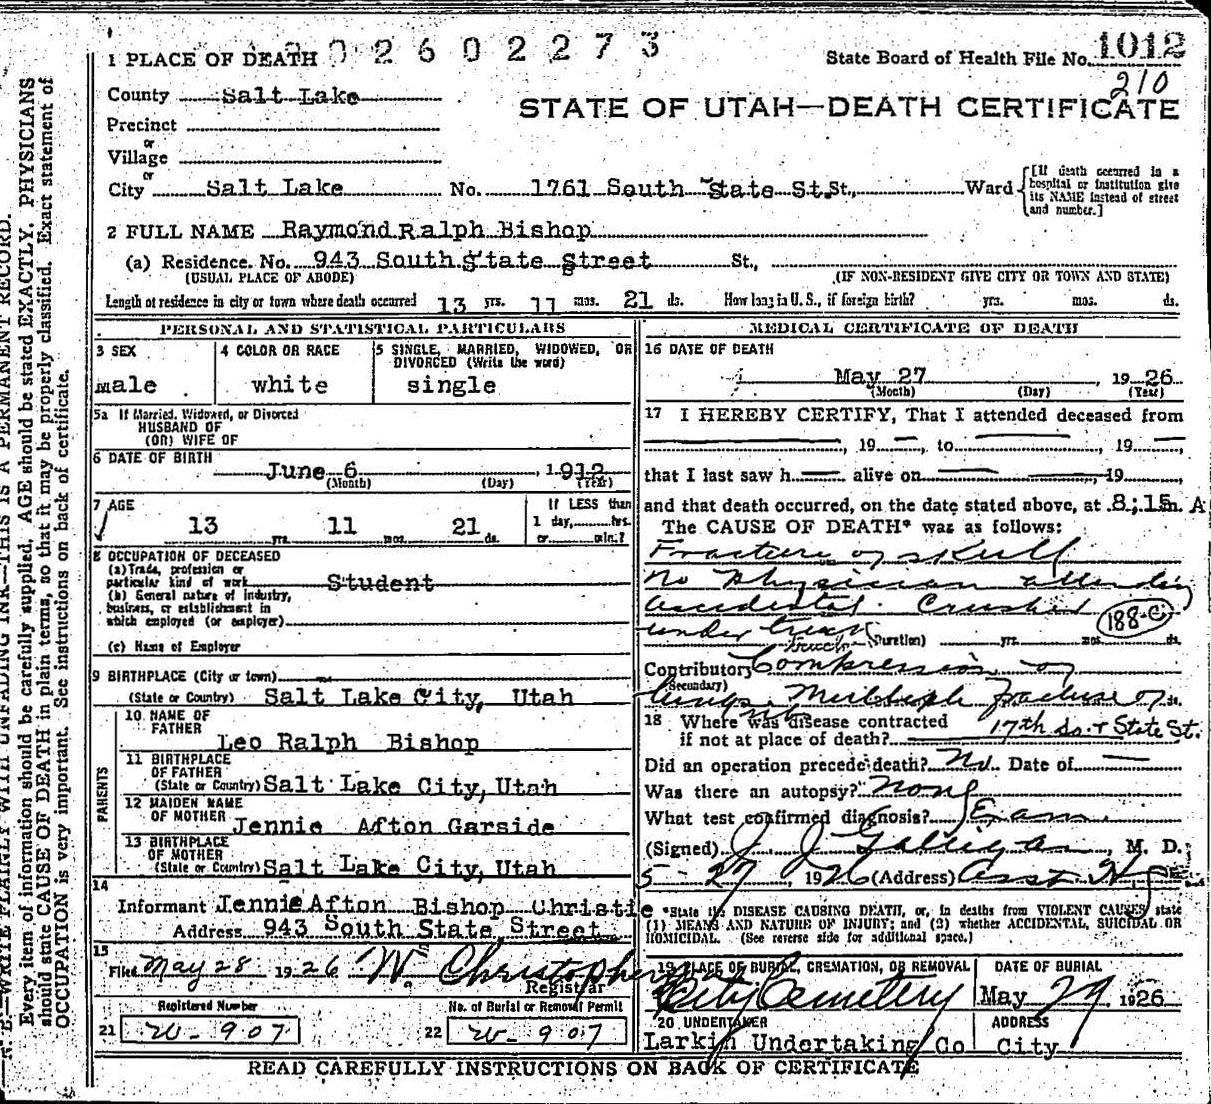 1 PLACE OF DEATH 02602273
State Board of Health File No. 1012
210
County Salt Lake
STATE OF UTAH—DEATH CERTIFICATE
Precinct
or
Village
or
City Salt Lake No. 1761 South State St. St., Ward
[If death occurred in a
hospital or institution give
its NAME instead of street
and number.]
2 FULL NAME Raymond Ralph Bishop
(a) Residence. No. 943 South State Street St.,
(USUAL PLACE OF ABODE) (IF NON-RESIDENT GIVE CITY OR TOWN AND STATE)
Length of residence in city or town where death occurred 13 yrs. 11 mos. 21 ds. How long in U. S., if foreign birth? yrs. mos. ds.
PERSONAL AND STATISTICAL PARTICULARS
3 SEX
male
4 COLOR OR RACE
white
5 SINGLE, MARRIED, WIDOWED, OR
DIVORCED (Write the word)
single
5a If Married, Widowed, or Divorced
HUSBAND OF
(OR) WIFE OF
6 DATE OF BIRTH
June 6, 1912
(Month) (Day) (Year)
7 AGE
13 yrs. 11 mos. 21 ds.
If LESS than
1 day, hrs.
or min.?
8 OCCUPATION OF DECEASED
(a) Trade, profession or
particular kind of work Student
(b) General nature of industry,
business, or establishment in
which employed (or employer)
(c) Name of Employer
9 BIRTHPLACE (City or town)
(State or Country) Salt Lake City, Utah
PARENTS
10 NAME OF
FATHER Leo Ralph Bishop
11 BIRTHPLACE
OF FATHER
(State or Country) Salt Lake City, Utah
12 MAIDEN NAME
OF MOTHER Jennie Afton Garside
13 BIRTHPLACE
OF MOTHER
(State or Country) Salt Lake City, Utah
14
Informant Jennie Afton Bishop Christie
Address 943 South State Street
15
Filed May 28 1926 W. Christopherson
Registrar
Registered Number
21 W-907
No. of Burial or Removal Permit
22 W-907
MEDICAL CERTIFICATE OF DEATH
16 DATE OF DEATH
May 27, 1926
(Month) (Day) (Year)
17 I HEREBY CERTIFY, That I attended deceased from
, 19 to , 19
that I last saw h alive on , 19
and that death occurred, on the date stated above, at 8:15 m. A
The CAUSE OF DEATH* was as follows:
Fracture of skull
no Physician attending
accidental. Crushed
under truck 188-C
truck (Duration) yrs. mos. ds.
Contributory Compression of
(Secondary)
lungs. Multiple fracture of
18 Where was disease contracted
if not at place of death? 17th So. & State St.
Did an operation precede death? No. Date of
Was there an autopsy? None
What test confirmed diagnosis? Exam.
(Signed) J. J. Galligan, M. D.
5-27, 1926 (Address) Asst
*State the DISEASE CAUSING DEATH, or, in deaths from VIOLENT CAUSES, state
(1) MEANS AND NATURE OF INJURY; and (2) whether ACCIDENTAL, SUICIDAL OR
HOMICIDAL. (See reverse side for additional space.)
19 PLACE OF BURIAL, CREMATION, OR REMOVAL
City Cemetery
DATE OF BURIAL
May 29 1926
20 UNDERTAKER
Larkin Undertaking Co
ADDRESS
City
READ CAREFULLY INSTRUCTIONS ON BACK OF CERTIFICATE
WRITE PLAINLY WITH UNFADING INK—THIS IS A PERMANENT RECORD.
Every item of information should be carefully supplied. AGE should be stated EXACTLY. PHYSICIANS
should state CAUSE OF DEATH in plain terms, so that it may be properly classified. Exact statement of
OCCUPATION is very important. See instructions on back of certificate.